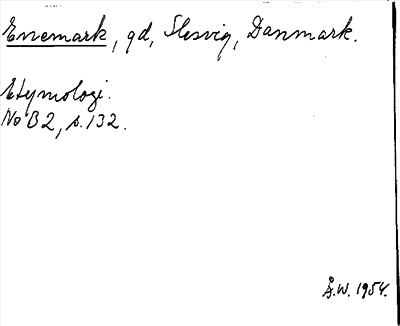 Enemark, gd, Slesvig, Danmark.
Etymologi.
NoB2, s. 132.
Å.W. 1954.